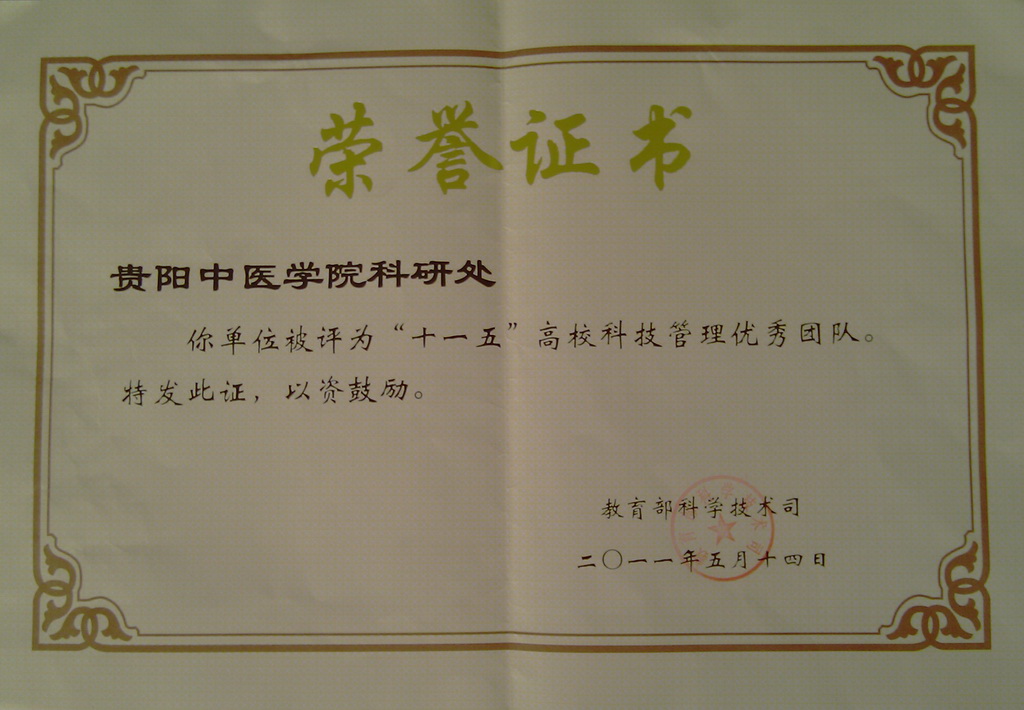 荣誉证书
贵阳中医学院科研处
你单位被评为“十一五”高校科技管理优秀团队。
特发此证，以资鼓励。
教育部科学技术司
二〇一一年五月十四日